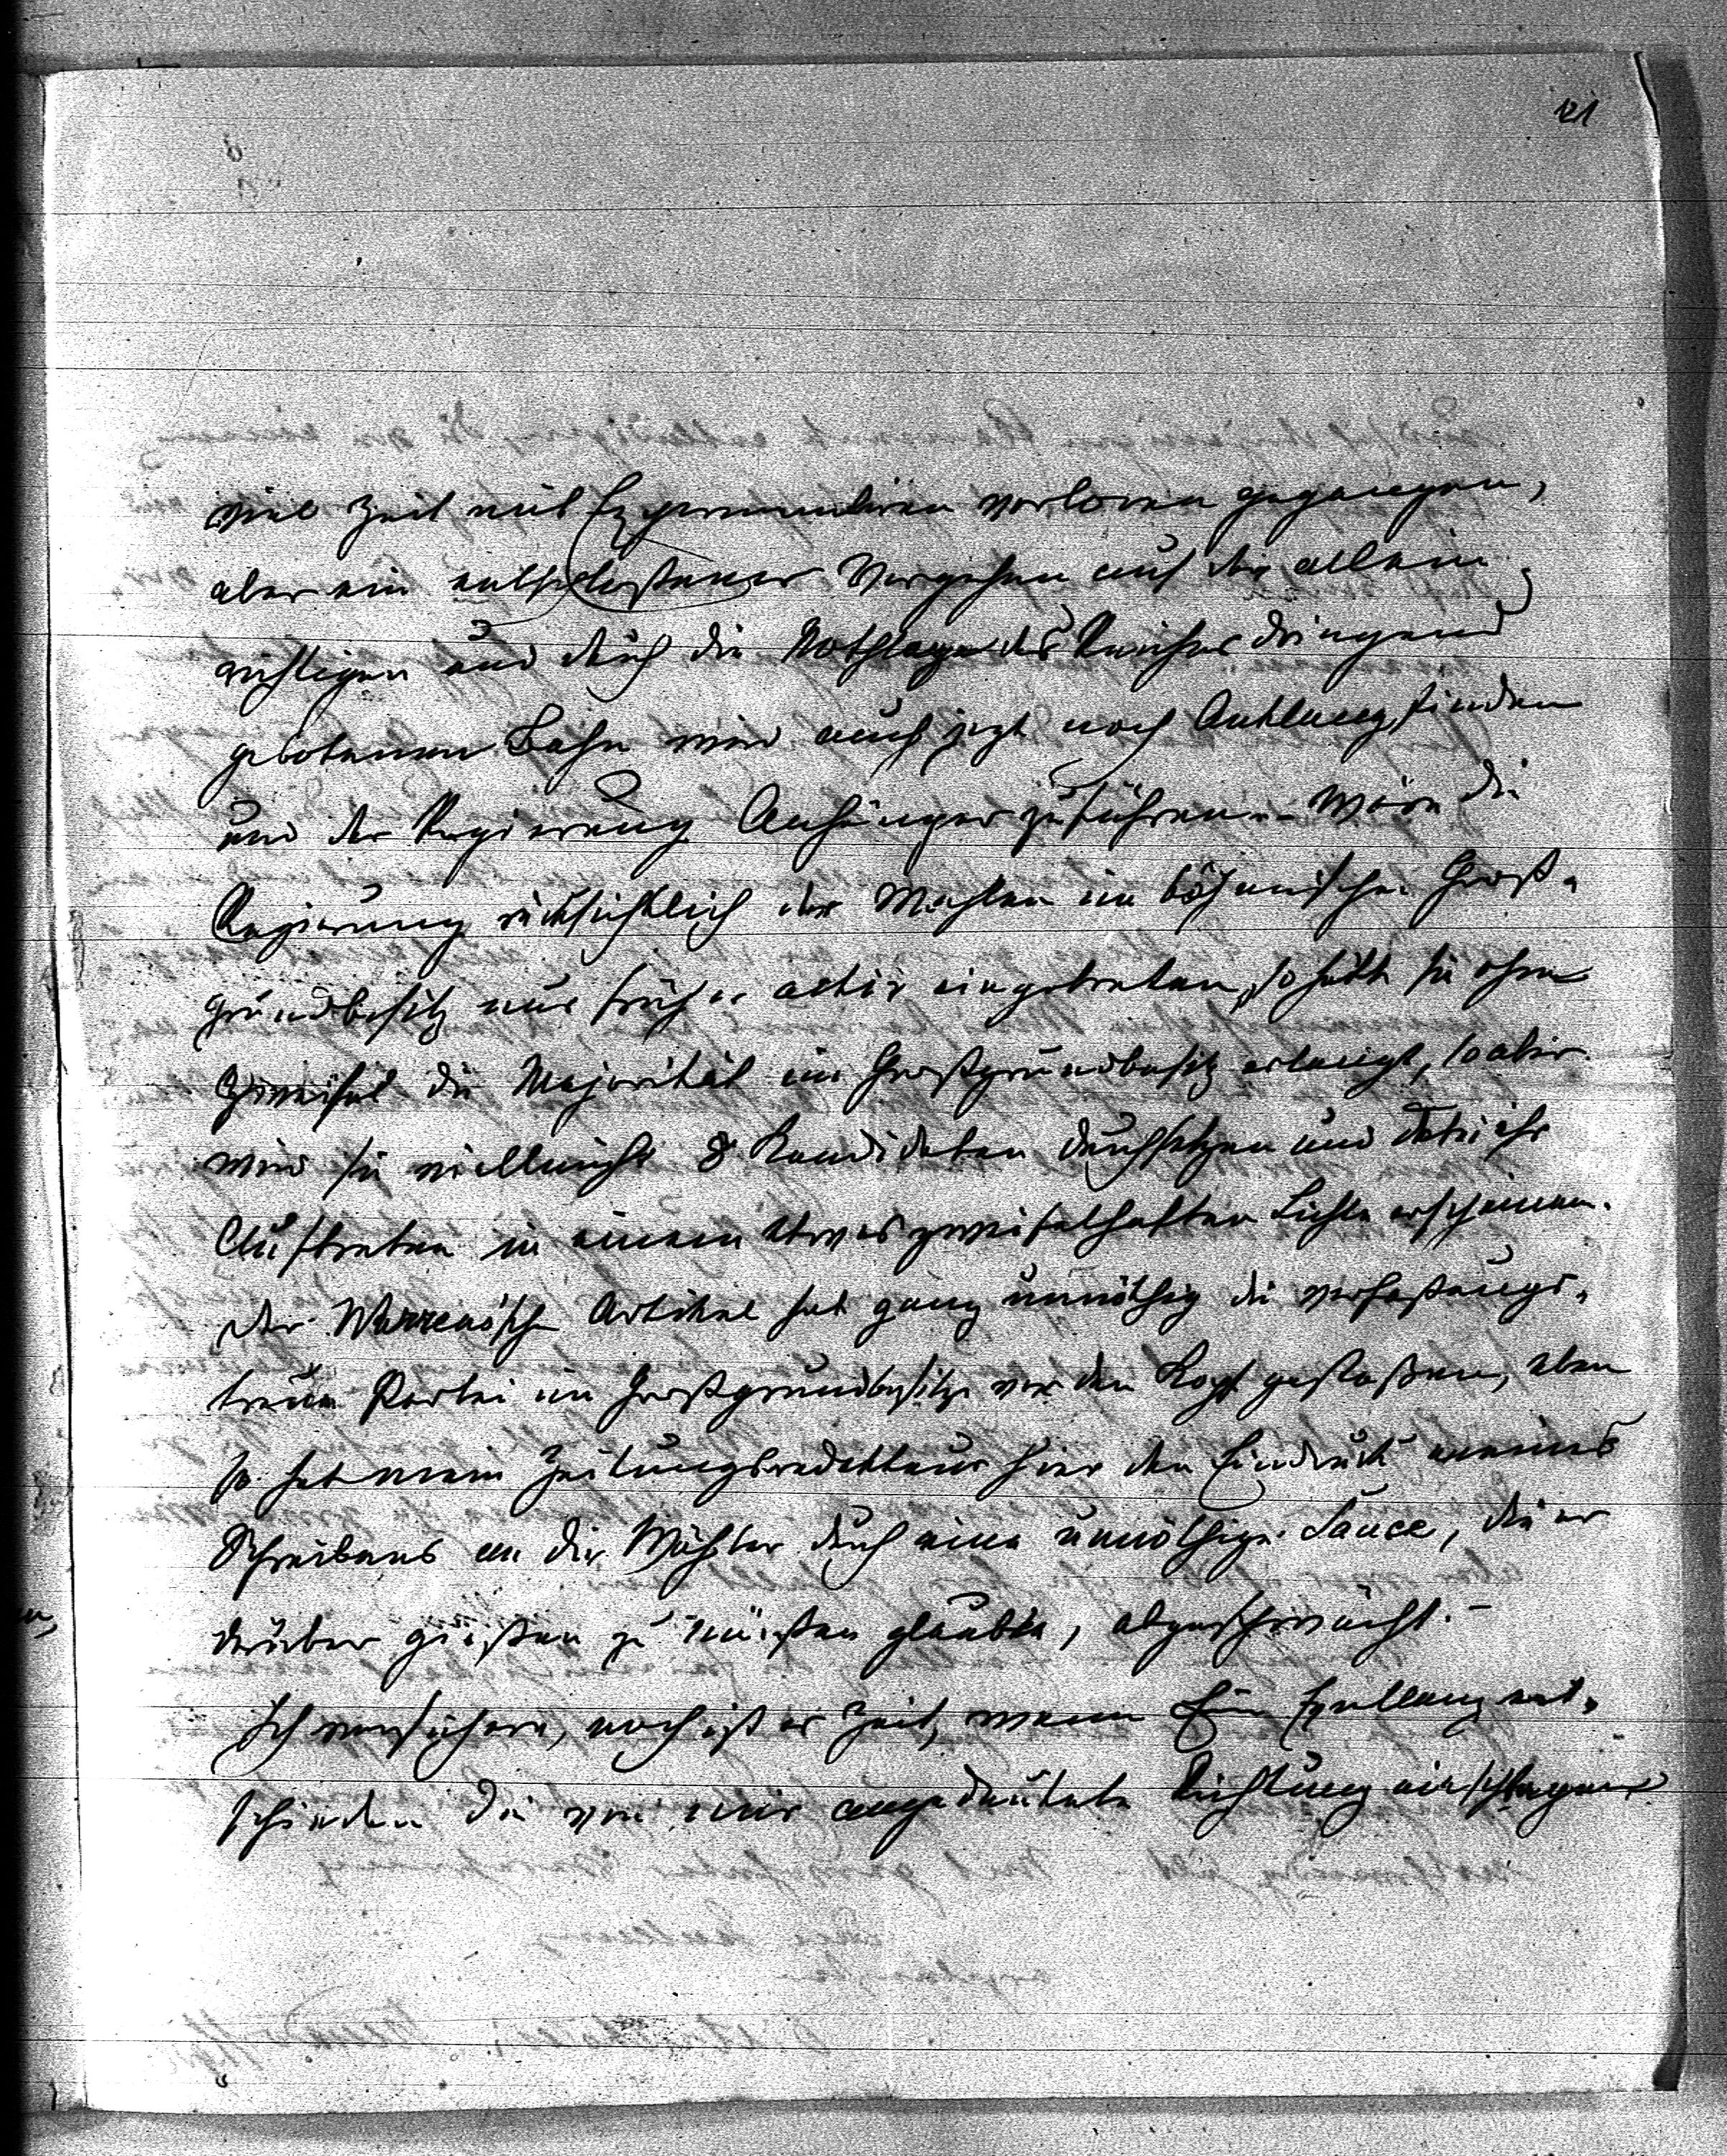 121
viel Zeit mit Experimentiren verloren gegangen,
aber ein entschloßenes Vorgehen auf der allein
richtigen und durch die Nothlage des Reiches dringend
gebotenen Bahn wird auch jezt noch Anklang finden
und der Regierung Anhänger zuführen. – Wäre die
Regierung rücksichtlich der Wahlen im böhmischen Groß-
grundbesitz nur früher activ eingetreten, so hätte sie ohne
Zweifel die Majorität im Großgrundbesitz erlangt, so aber
wird sie vielleicht 8 Kandidaten durchsetzen und dabei ihr
Auftreten in einem etwas zweifelhaften Lichte erscheinen.
Der Warrens'sche Artikel hat ganz unnöthig die verfaßungs-
treue Partei im Großgrundbesitze vor den Kopf gestoßen, eben
so hat mein Zeitungsredakteur hier den Eindruck meines
Schreibens an die Wähler durch eine unnöthige Sauce, die er
darüber gießen zu müißen glaubte, abgeschwächt. –
Ich versichere, noch ist es Zeit, wenn Eure Exzellenz ent-
schieden die von mir angedeutete Richtung einschlagen